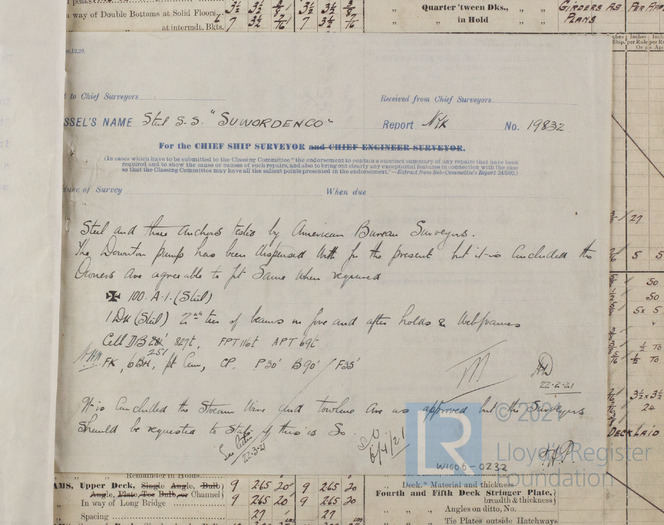 way of Double Bottoms at Solid Floors,
at intermdt. Bkts.
Quarter 'tween Dks.,
in Hold
GIRDERS AS
PLANS
to Chief Surveyors
Received from Chief Surveyors
SSEL'S NAME Steel S.S. "SUWORDENCO"
Report Nyk No. 19832
For the CHIEF SHIP SURVEYOR and CHIEF ENGINEER SURVEYOR.
(In cases which have to be submitted to the Classing Committee "the endorsement to contain a succinct summary of any repairs that have been
required and to show the cause or causes of such repairs, and also to bring out clearly any exceptional features in connection with the case
so that the Classing Committee may have all the salient points presented in the endorsement."—Extract from Sub-Committee's Report
of Survey
When due
Steel and three anchors tested by American Bureau Surveyors.
The Downton pump has been dispensed with for the present but it is concluded the
Owners are agreeable to fit same when required
100.A.1.(Steel)
1 Dk (Steel) 2nd tier of beams in fore and after holds & Webframes
Cell DB 827t, FPT 116t APT 69t
FK, 6BH, pt Cem, CP. P30' B90' F35'
22-2-21
It is concluded the Stream Wire and towline are as approved but the Surveyors
should be requested to state if this is so
22-3-21
6/4/21
© 2021
LR
Lloyd's Register
Foundation
W1006-0232
DECK LAID
AMS, Upper Deck, Single Angle, Bulb
Angle, Plate, Tee Bulb, or Channel) 9 265 20 9 265 20
In way of Long Bridge 9 265 20 9 265 20
Spacing 29 29
Deck." Material and thickness
Fourth and Fifth Deck Stringer Plate,
(breadth & thickness)
Angles on ditto, No.
Tie Plates outside Hatchways